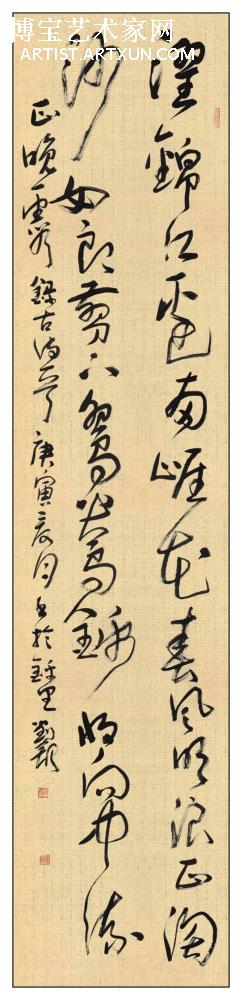 博宝艺术家网
ARTIST.ARTXUN.COM
濯錦江邊兩崖花春風吹浪正淘
沙女郎剪下鴛鴦錦將向中流
疋晚霞 錄古詩一首 庚寅 月書於